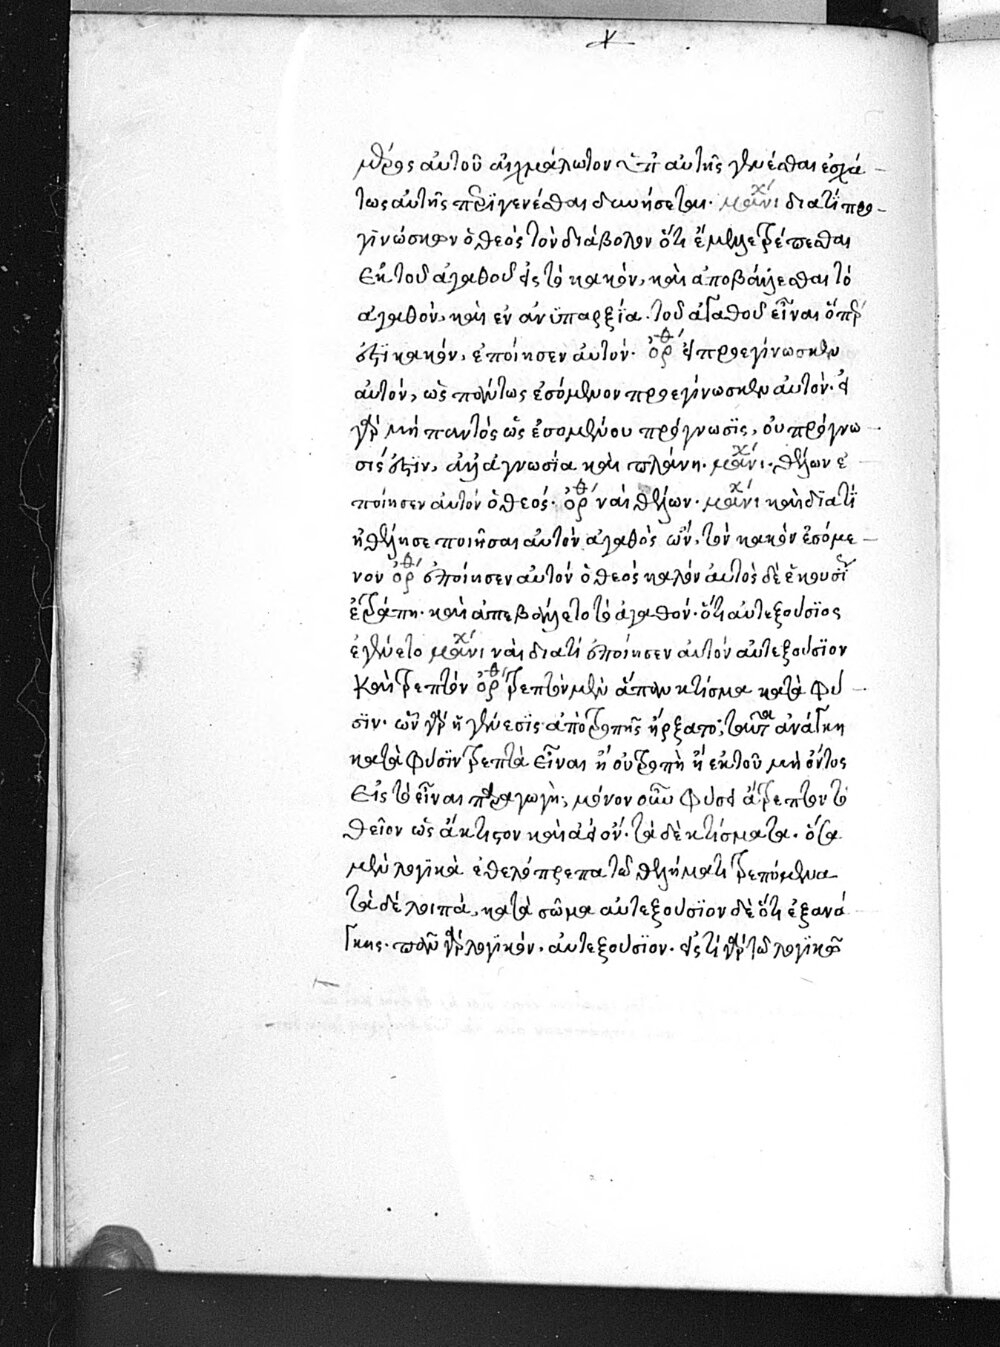 μέρος αὐτοῦ αἰχμάλωτον ὑπ αὐτῆς γενέσθαι ἐσχά
τως αὐτῆς περϊγενέσθαι δυνήσεται· μανιχ διατί προ
γϊνώσκων ὁ θεὸς τὸν διάβολον ὅτι ἔμελλε τρέπεσθαι
ἐκ τοῦ ἀγαθοῦ εἰς τὸ κακὸν, καὶ ἀποβάλλεσθαι τὸ
ἀγαθὸν, καὶ ἐν ἀνϋπαρξία τοῦ ἀγαθοῦ εἶναι ὅπερ
ἐστὶ κακόν, ἐποίησεν αὐτόν· ὀρθ εἰ προεγίνωσκεν
αὐτόν, ὡς πάντως ἐσόμενον προεγίνωσκεν αὐτόν· εἰ
γὰρ μὴ παντὸς ὡς ἐσομένου πρόγνωσϊς, οὐ πρόγνω
σίς ἐστϊν, ἀλλ ἀγνωσία καὶ πλάνη· μανιχ· θέλων ἐ
ποίησεν αὐτὸν ὁ θεός· ὀρθ ναὶ θέλων· μανιχ καὶ δϊατί
ἠθέλησε ποιῆσαι αὐτὸν ἀγαθὸς ὤν, τὸν κακὸν ἐσόμε
νον ὀρθ ἐποίησεν αὐτὸν ὁ θεὸς καλόν αὐτὸς δὲ ἑκουσί
ἐτράπη· καὶ ἀπεβάλλετο τὸ ἀγαθόν· ὅτι αὐτεξούσϊος
ἐγένετο μανιχ ναὶ διατί ἐποίησεν αὐτόν αὐτεξούσϊον
καὶ τρεπτόν ὀρθ τρεπτὸν μὲν ἅπαν κτίσμα κατὰ φύ
σϊν· ὧν γὰρ ἡ γένεσϊς ἀπὸ τροπῆς ἤρξατο, ταῦτα ἀνάγκη
κατὰ φύσϊν τρεπτὰ εἶναι ἢ οὐ τροπὴ ἡ ἐκ τοῦ μὴ ὄντος
εἰς τὸ εἶναι παραγωγὴ; μόνον οὖν φύσει ἄτρεπτον τὸ
θεῖον ὡς ἄκτιστον καὶ ἀεὶ ὄν· τὰ δὲ κτίσματα· ὅσα
μὲν λογϊκὰ ἐθελότρεπτα τῶ θελήματι τρεπόμενα
τὰ δὲ λοιπὰ, κατὰ σῶμα αὐτεξούσϊον δὲ ὅτι ἐξανά
γκης· πᾶν γὰρ λογϊκόν, αὐτεξούσϊον· εἰς τί γὰρ τῶ λογϊκῶ